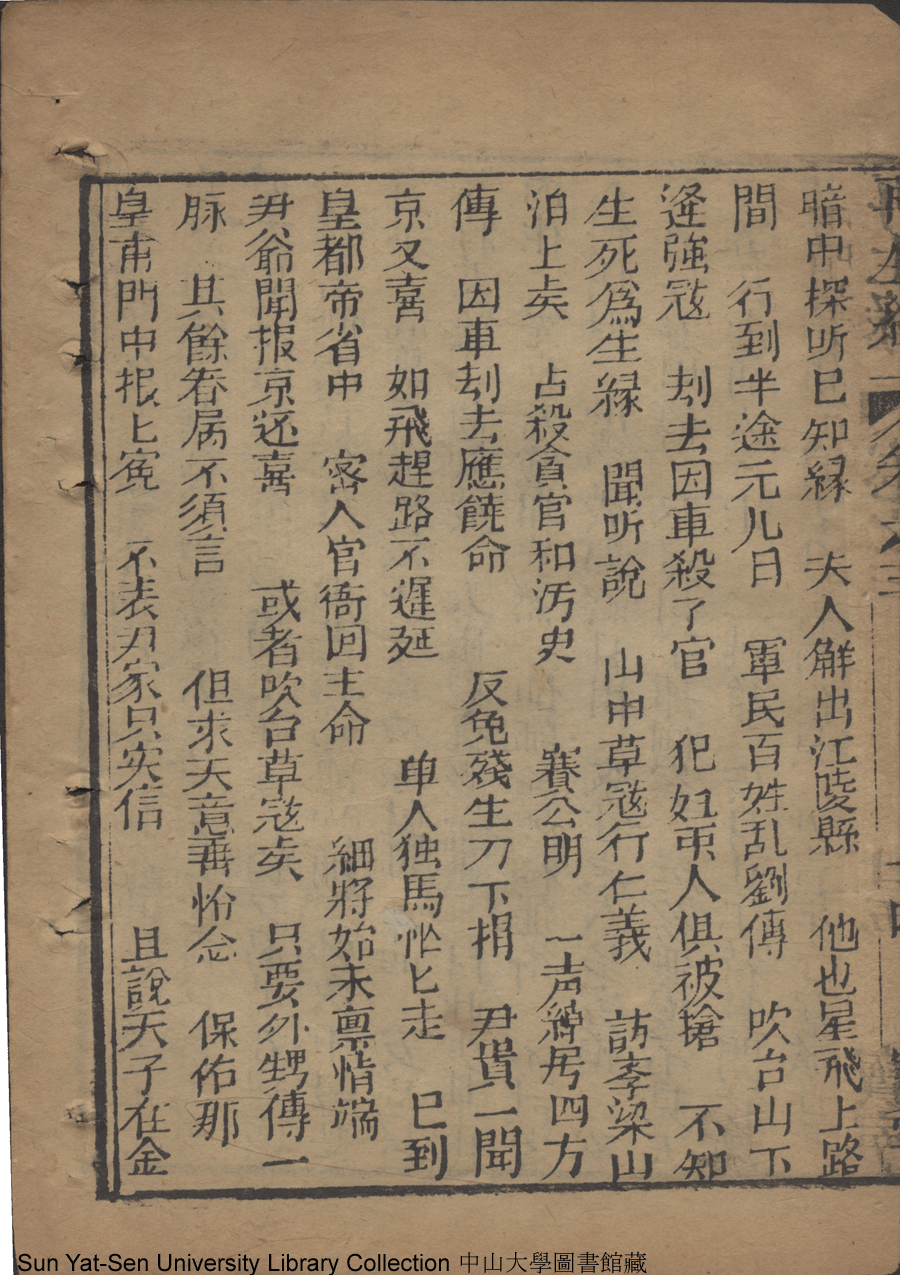 暗中探听已知縁　夫人觧出江陵縣　他也星飛上路
間　行到半途元儿日　軍民百姓乱劉傳　吹台山下
逄強𡨥　刦去因車殺了官　犯妇
人俱被搶　不知
生死爲生縁　聞听說　山中草𡨥行仁義　訪李梁山
泊上矣　占殺貪官和汚史　賽公明　一声
居四方
傳　因車刦去應饒命　反免殘生刀下捐　尹貴一聞
京又喜　如飛趕路不遲延　单人独馬忙匕走　已到
皇都帝省中　宻人官衙囬主命　細將始末禀情端
尹爺聞报京还喜　或者吹台草𡨥矣　只要外甥傳一
脉　其餘眷属不須言　但求天意垂怜念　保佑那
皇甫門中报匕寃　不表尹家只实信　且說天子在金
再生縁
Sun Yat-Sen University Library Collection 中山大學圖書館藏